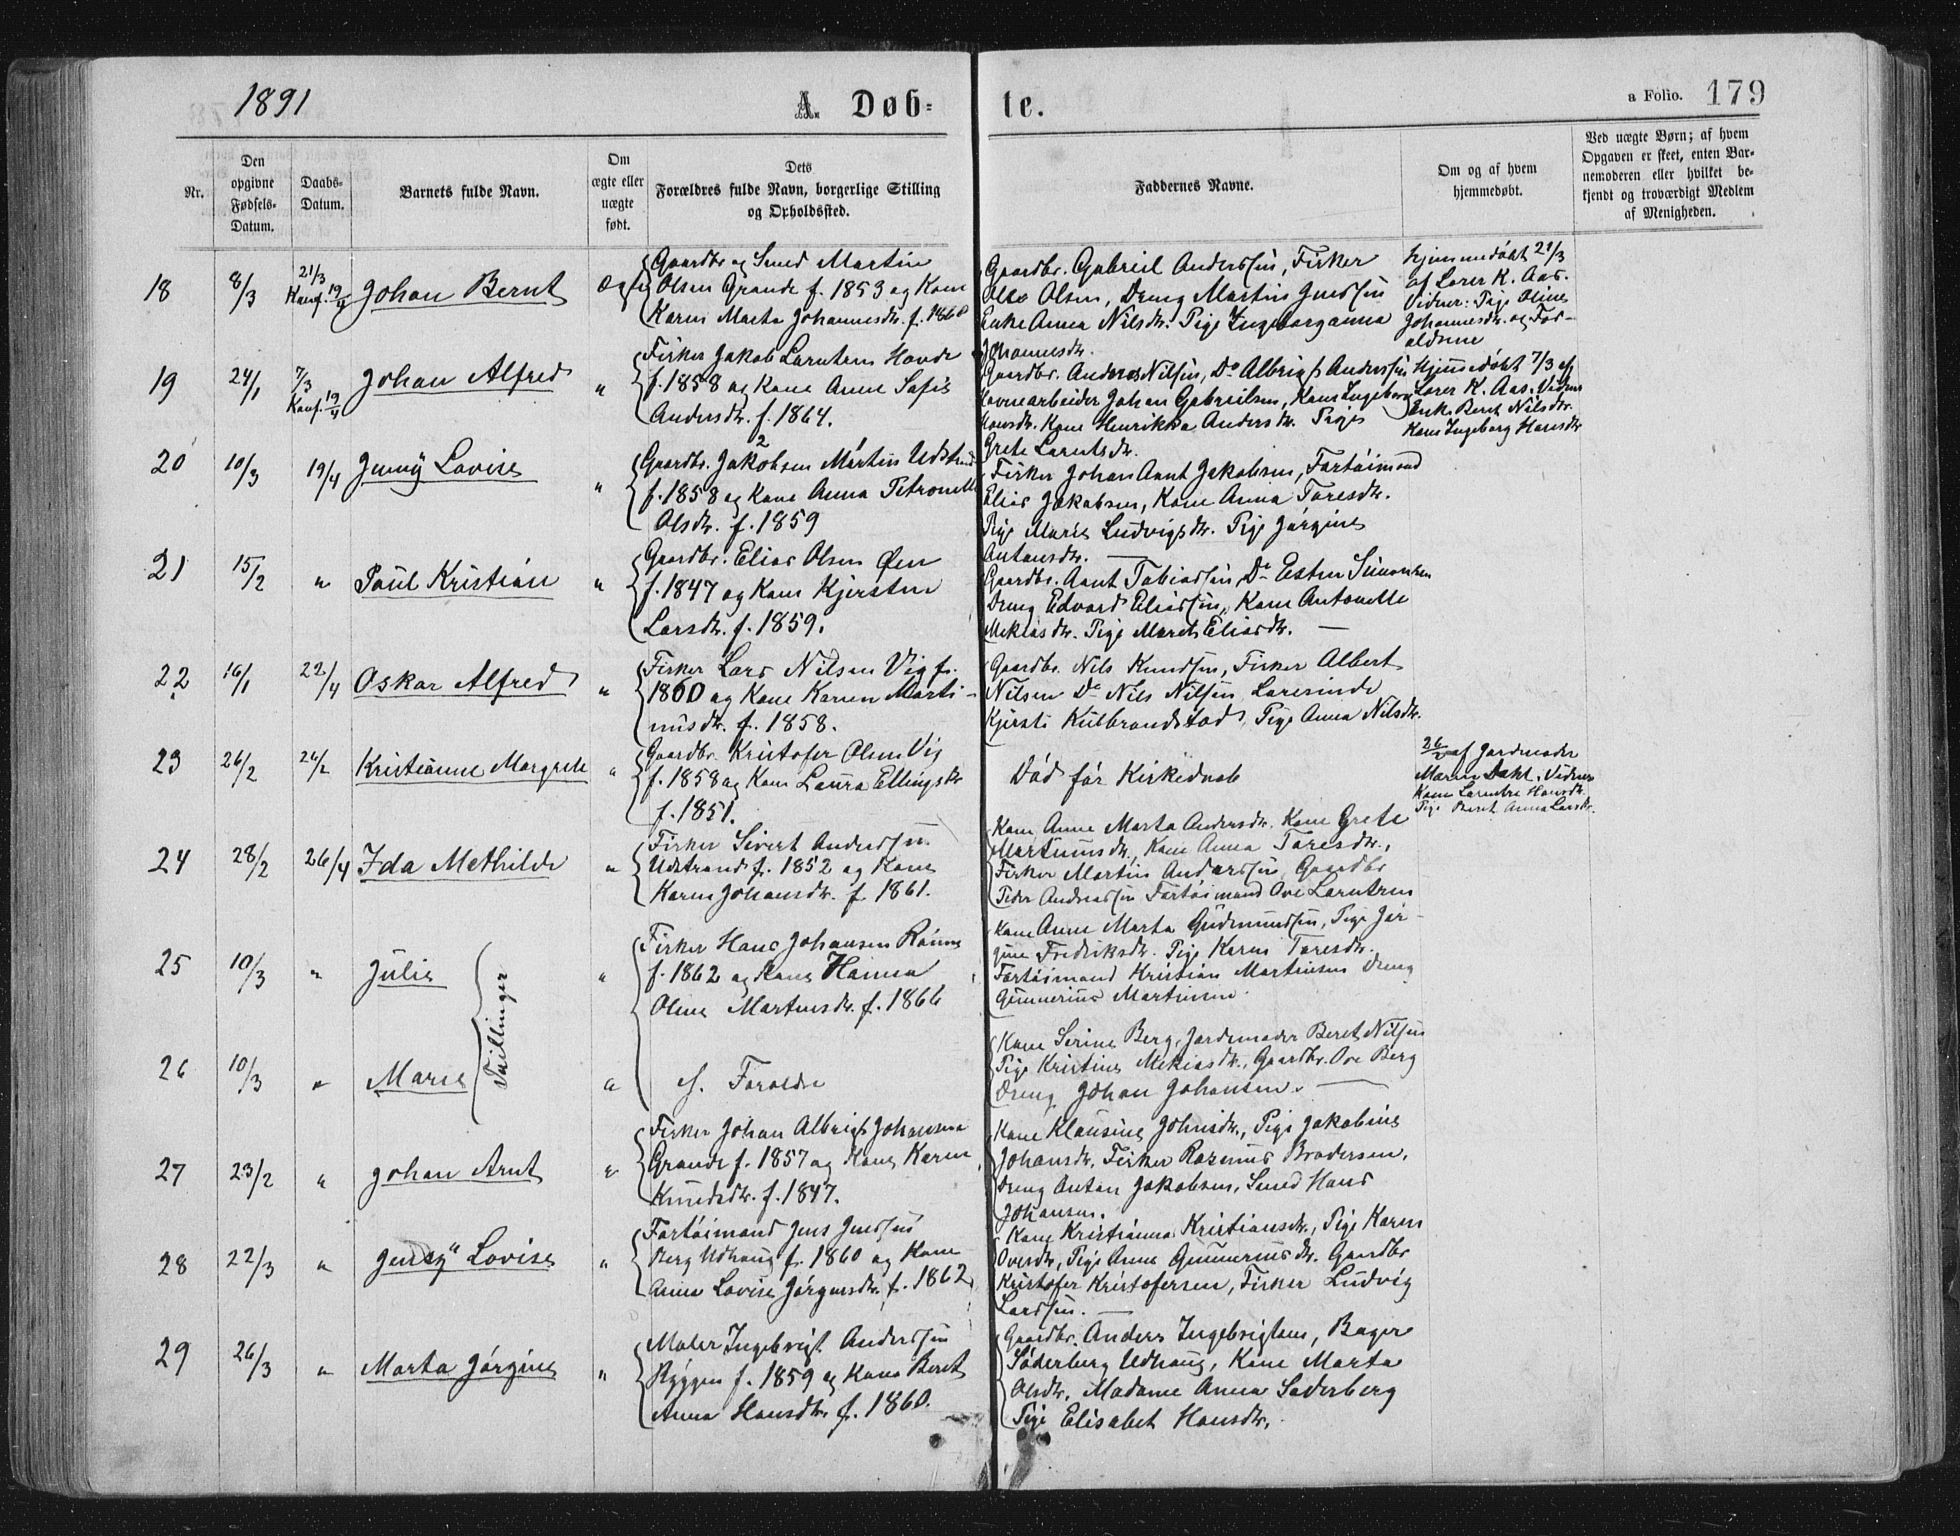 1891
A. Døb-
te.
a Folio. 179
Nr.
Den opgivne Fødsels-Datum.
Daabs-Datum.
Barnets fulde Navn.
Om ægte eller uægte født.
Dets Forældres fulde Navn, borgerlige Stilling og Opholdssted.
Faddernes Navne.
Om og af hvem hjemmedøbt.
Ved uægte Børn; af hvem Opgaven er skeet, enten Barnemoderen eller hvilket bekjendt og troværdigt Medlem af Menigheden.
18 8/3 21/3 Konf. 19/4 Johan Bernt Ægte
Gaardbr. og Smed Martin
Olsen Grande f. 1853 og Kone
Karen Marta Johannesdtr. f. 1860
Gaardbr. Gabriel Anderssen, Fisker
Olsen, Dreng Martin
Enke Anna Nilsdtr. Pige Ingeborganna
Johannesdtr.
Hjemmedøbt 21/3
af Lærer K. Aas.
Vidner: Pige Oline
Johannesdtr. og For-
ældrene
19 24/1 7/3 Konf. 19/4 Johan Alfred "
Fisker Jakob Larentsen Hovde
f. 1858 og Kone Anne Sofie
Andersdtr. f. 1864.
Gaardbr. Anders Nilsen, Do Albrigt Anderssen
Havnearbeider Johan Gabrielsen, Kone Ingeborg
Hansdtr. Kone Henrikka Andersdtr. Pige
Grete Larentsdtr.
Hjemmedøbt 7/3 af
Lærer K. Aas. Vidner
Enke Beret Nilsdtr.
Kone Ingeborg Hansdtr.
20 10/3 19/4 Jenny Lovise "
Gaardbr. Jakobsen Martin Udstrand
f. 1858 og Kone Anna Petronelle
Olsdtr. f. 1859
Fisker Johan Arnt Jakobsen, Fartøimand
Elias Jakobsen, Kone Anna Toresdtr.
Pige Marie Ludvigsdtr. Pige Jørgine
Antonsdtr. —
21 15/2 " Paul Kristian "
Gaardbr. Elias Olsen Øen
f. 1847 og Kone Kjerstine
Larsdtr. f. 1859.
Gaardbr. Arnt Tobiassen, Do Esten Simonsen
Dreng Edvard Eliassen, Kone Antonette
Mekiasdtr. Pige Maret Eliasdtr. —
22 16/1 22/4 Oskar Alfred "
Fisker Lars Nilsen Vig f.
1860 og Kone Karen Marti-
nusdtr. f. 1858.
Gaardbr. Nils Knudsen, Fisker Albert
Nilsen Do Nils Nilsen, Lærerinde
Kjersti Kulbrandstad, Pige Anna Nilsdtr.
23 26/2 26/2 Kristianne Margrete "
Gaardbr. Kristofer Olsen Vig
f. 1858 og Kone Laura Ellingsdtr.
f. 1851.
Død før Kirkedaab
26/2 af Jordmoder
Maren Dahl, Vidner
Kone Larentse Hansdtr.
Pige Beret Anna Larsdtr.
24 28/2 26/4 Ida Methilde "
Fisker Sivert Anderssen
Udstrand f. 1852 og Kone
Karen Johansdtr. f. 1861.
Kone Anne Marta Andersdtr. Kone Grete
Martinusdtr., Kone Anna Toresdtr.,
Fisker Martin Anderssen, Gaardbr.
Peder Andreassen Fartøimand Ove Larentsen
25 10/3 " Julie "
Tvillinger
Fisker Hans Johansen Rønne
f. 1862 og Kone Hanna
Oline Martinsdtr. f. 1866
Kone Anne Marta Gudmundsen, Pige Jør-
gine Fredriksdtr. Pige Karen Toresdtr.
Fartøimand Kristian Martinsen Dreng
Gunnerius Martinsen.
26 10/3 " Marie "
s. Forældre
Kone Serine Berg, Jordemoder Beret Nilsen
Pige Kristine Mekiasdtr., Gaardbr. Ove Berg
Dreng Johan Johansen. —
27 23/2 " Johan Arnt "
Fisker Johan Albrigt Johansen
Grande f. 1857 og Kone Karen
Knudsdtr. f. 1847.
Kone Klausine Johnsdtr., Pige Jakobine
Johansdtr. Fisker Rasmus Brodersen,
Dreng Anton Jakobsen, Smed Hans
Johansen.
28 22/3 " Jenny Lovise "
Fartøimand Jens Jenssen
Berg Udhaug f. 1860 og Kone
Anna Lovise Jørgensdtr. f. 1862
Kone Kristianna Kristiansdtr., Pige Karen
Ovesdtr., Pige Anne Gunneriusdtr. Gaardbr.
Kristofer Kristofersen, Fisker Ludvig
Larssen. —
29 26/3 " Marta Jørgine "
Maler Ingebrigt Anderssen
Ryggen f. 1859 og Kone Beret
Anna Hansdtr. f. 1860.
Gaardbr. Anders Ingebrigtsen, Bager
Søderberg Udhaug, Kone Marta
Olsdtr. Madame Anna Søderberg
Pige Elisabet Hansdtr.